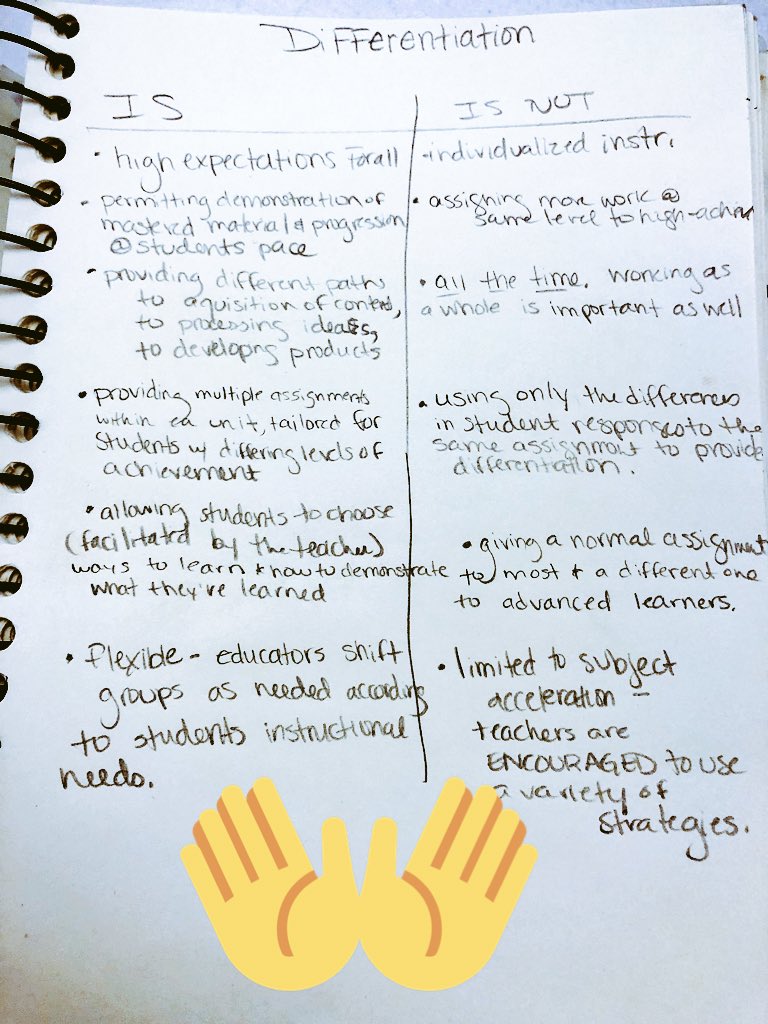 Differentiation
IS
• high expectations for all
• permitting demonstration of
mastered material & progression
@ students pace
• providing different paths
to aquisition of content,
to processing ideas,
to developing products
• providing multiple assignments
within ea unit, tailored for
students w/ differing levels of
achievement
• allowing students to choose
(facilitated by the teacher)
ways to learn & how to demonstrate
what they've learned
• flexible - educators shift
groups as needed according
to students instructional
needs.
IS NOT
- individualized instr.
• assigning more work @
same level to high-achiev
• all the time. Working as
a whole is important as well
• using only the differences
in student responses to the
same assignment to provide
differentiation.
• giving a normal assignment
to most & a different one
to advanced learners.
• limited to subject
acceleration -
teachers are
ENCOURAGED to use
a variety of
strategies.